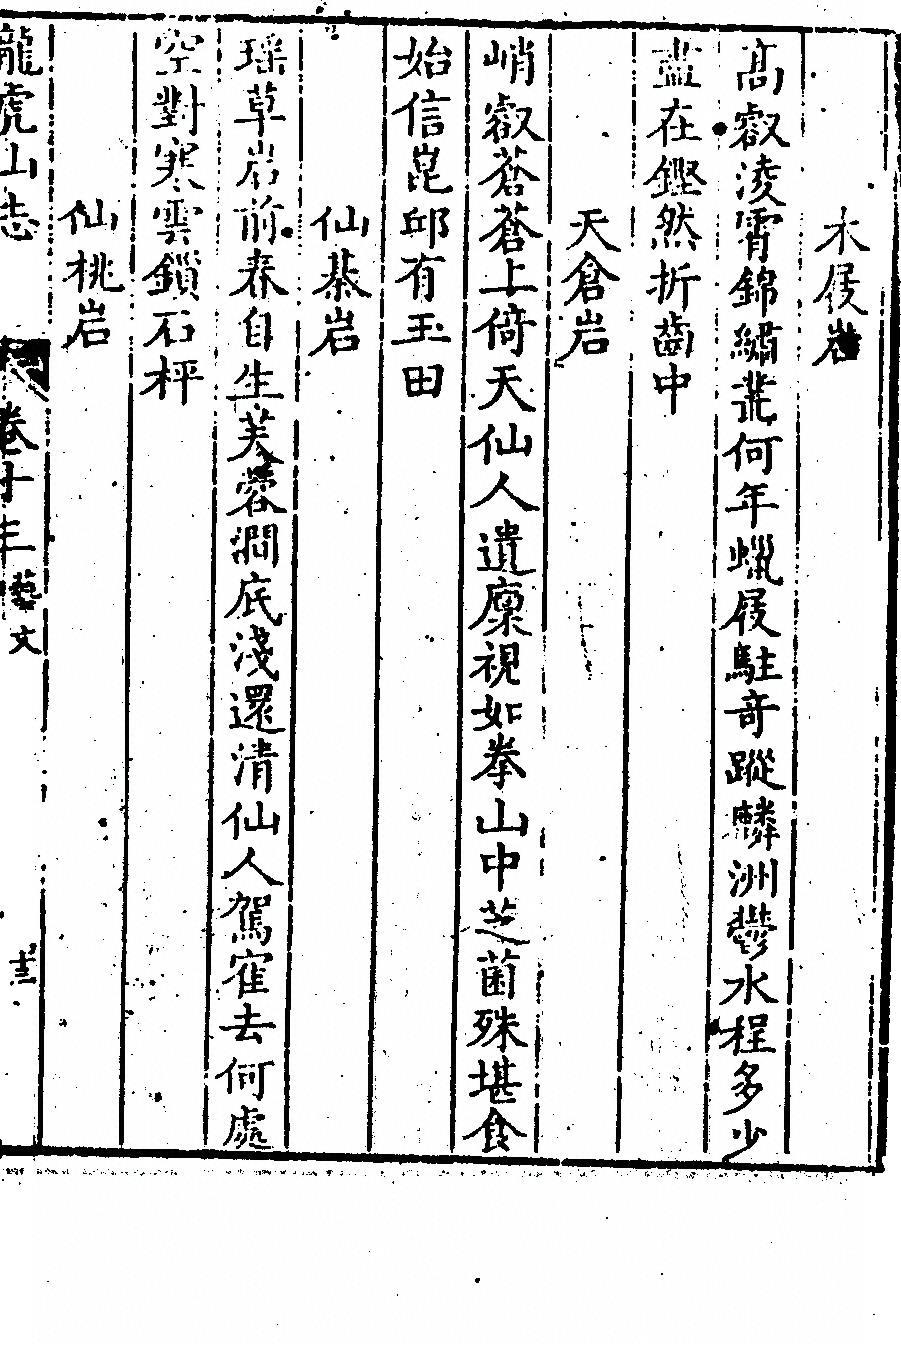 木屐岩
高𡾋淩霄錦繡叢何年蠟屐駐奇蹤麟洲鬱水程多少
盡在鏗然折齒中
天倉岩
峭𡾋蒼蒼上倚天仙人遺廪視如拳山中芝菌殊堪食
始信崑邱有玉田
仙棊岩
瑤草岩前春自生芙蓉澗底淺還清仙人駕寉去何處
空對寒雲鎖石枰
仙桃岩
龍虎山志
卷十三
藝文